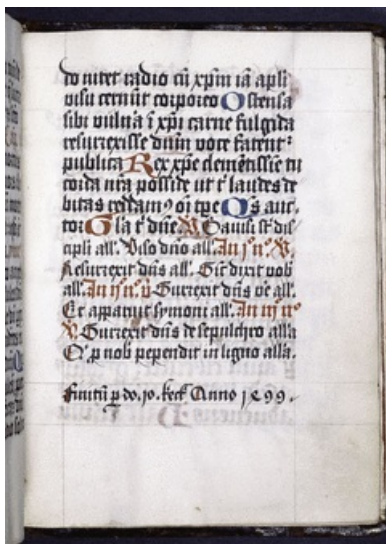 do nitet radio cū xp̄m iā apl̄i
visu cernūt corporeo Ostensa
sibi vuln̄a ī xp̄i carne fulgida
resurrexisse dūm voce fatent᷑
publica Rex xp̄e clemētissīe tu
corda nr̄a posside ut t᷑ laudes de
bitas reddamꝰ oī tp̄e Qs̄ auc-
tor Gl̄a t᷑ dn̄e. V. Gauisi sūt dis-
cipli all'. Viso dn̄o all'. An ī n° V.
Resurrexit dn̄s all'. Sic̄ dixit vob
all'. An ij n° V Surrexit dn̄s v̄e all'.
Et apparuit symoni all'. An iij n°
V. Surrexit dn̄s de sepulchro alla
Q' ꝓ nob pependit in ligno alla.
finitū ꝑ do. Jo. keck Anno 1499.